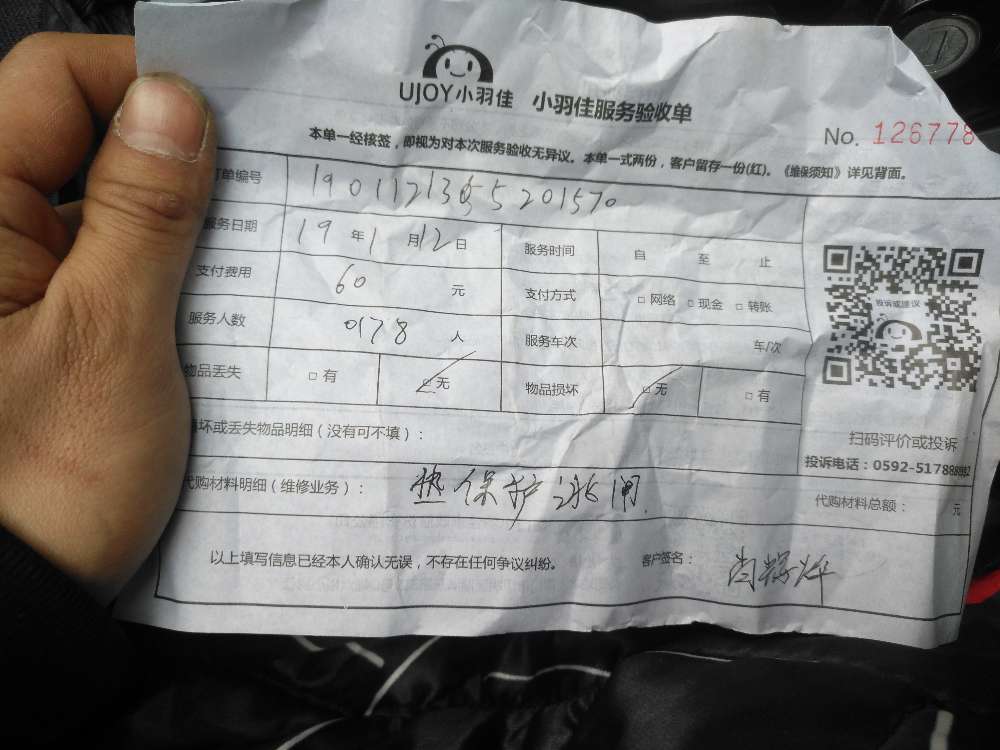 UJOY小羽佳 小羽佳服务验收单
No. 126778
本单一经核签，即视为对本次服务验收无异议。本单一式两份，客户留存一份(红)。《维保须知》详见背面。
订单编号
服务日期 19 年 1 月 12 日 服务时间 自 至 止
支付费用 60 元 支付方式 □ 网络 □ 现金 □ 转账
服务人数 0178 人 服务车次 车/次
物品丢失 □ 有 □ 无 物品损坏 □ 无 □ 有
投诉或建议
扫码评价或投诉
投诉电话：0592-517
损坏或丢失物品明细（没有可不填）：
代购材料明细（维修业务）： 热保护 闸 代购材料总额： 元
以上填写信息已经本人确认无误，不存在任何争议纠纷。 客户签名：